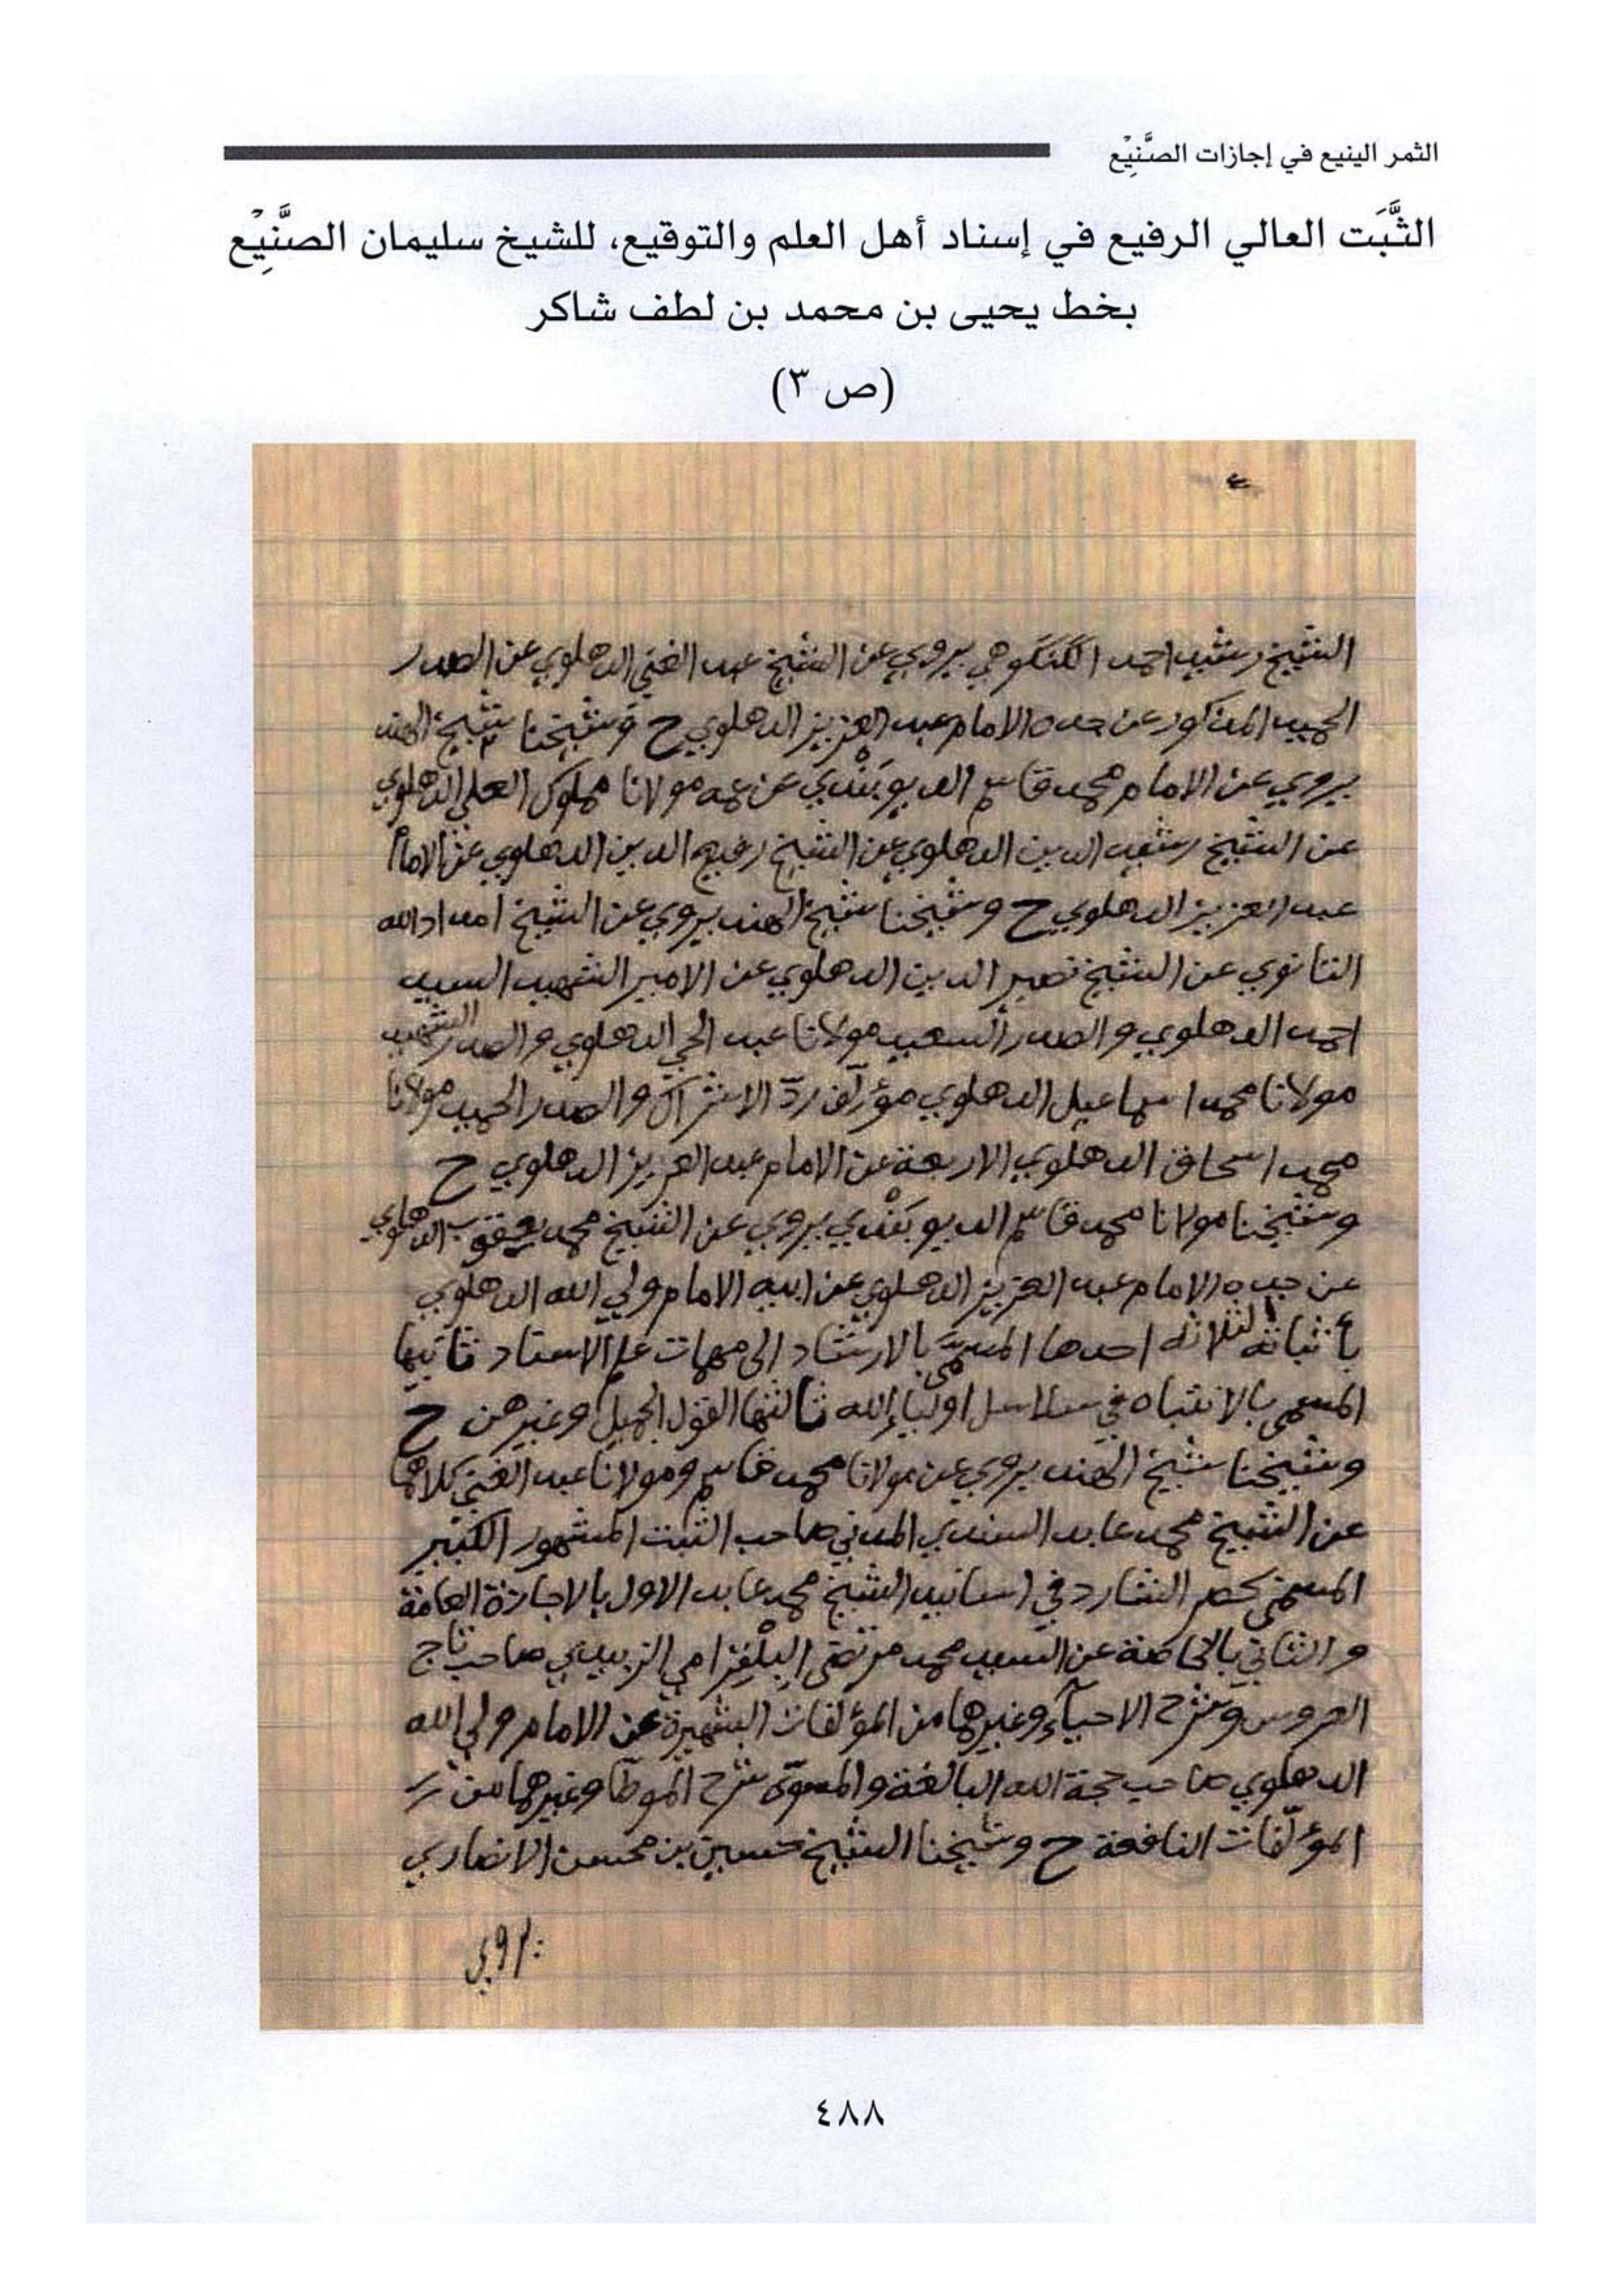 الثمر الينيع في إجازات الصَّنِيْع
الثَّبَت العالي الرفيع في إسناد أهل العلم والتوقيع، للشيخ سليمان الصَّنِيْع
بخط يحيى بن محمد بن لطف شاكر
(ص ٣)
الشيخ رشيد احمد الگنگوهي يروي عن الشيخ عبد الغني الدهلوي عن الصدر
الحميد المذكور عن جده الامام عبد العزيز الدهلوي ح وشيخنا شيخ الهند
يروي عن الامام محمد قاسم الديوبَنْدي عن عمه مولانا مملوك العلي الدهلوي
عن الشيخ رشيد الدين الدهلوي عن الشيخ رفيع الدين الدهلوي عن الامام
عبد العزيز الدهلوي ح وشيخنا شيخ الهند يروي عن الشيخ امداد الله
التانوي عن الشيخ نصير الدين الدهلوي عن الامير الشهيد السيد
احمد الدهلوي والصدر السعيد مولانا عبد الحي الدهلوي والصدر الشهيد
مولانا محمد اسماعيل الدهلوي مؤلف ردّ الاشراك والصدر الحميد مولانا
محمد اسحاق الدهلوي الاربعة عن الامام عبد العزيز الدهلوي ح
وشيخنا مولانا محمد قاسم الديوبَنْدي يروي عن الشيخ محمد يعقوب الدهلوي
عن جده الامام عبد العزيز الدهلوي عن ابيه الامام ولي الله الدهلوي
بأثباته الثلاثة احدها المسمَّى بالارشاد الى مهمات علم الاسناد ثانيها
المسمى بالانتباه في سلاسل اولياء الله ثالثها القول الجميل وغيرهن ح
وشيخنا شيخ الهند يروي عن مولانا محمد قاسم ومولانا عبد الغني كلاهما
عن الشيخ محمد عابد السندي المدني صاحب الثبت المشهور الكبير
المسمى بحصر الشارد في اسانيد الشيخ محمد عابد الاول بالاجازة العامة
والثاني بالخاصة عن السيد محمد مرتضى البِلْغِرامي الزبيدي صاحب تاج
العروس وشرح الاحيآء وغيرهما من المؤلفات الشهيرة عن الامام ولي الله
الدهلوي صاحب حجة الله البالغة والمسوّى شرح الموطّا وغيرهما من
المؤلّفات النافعة ح وشيخنا الشيخ حسين بن محسن الانصاري
يروي
٤٨٨